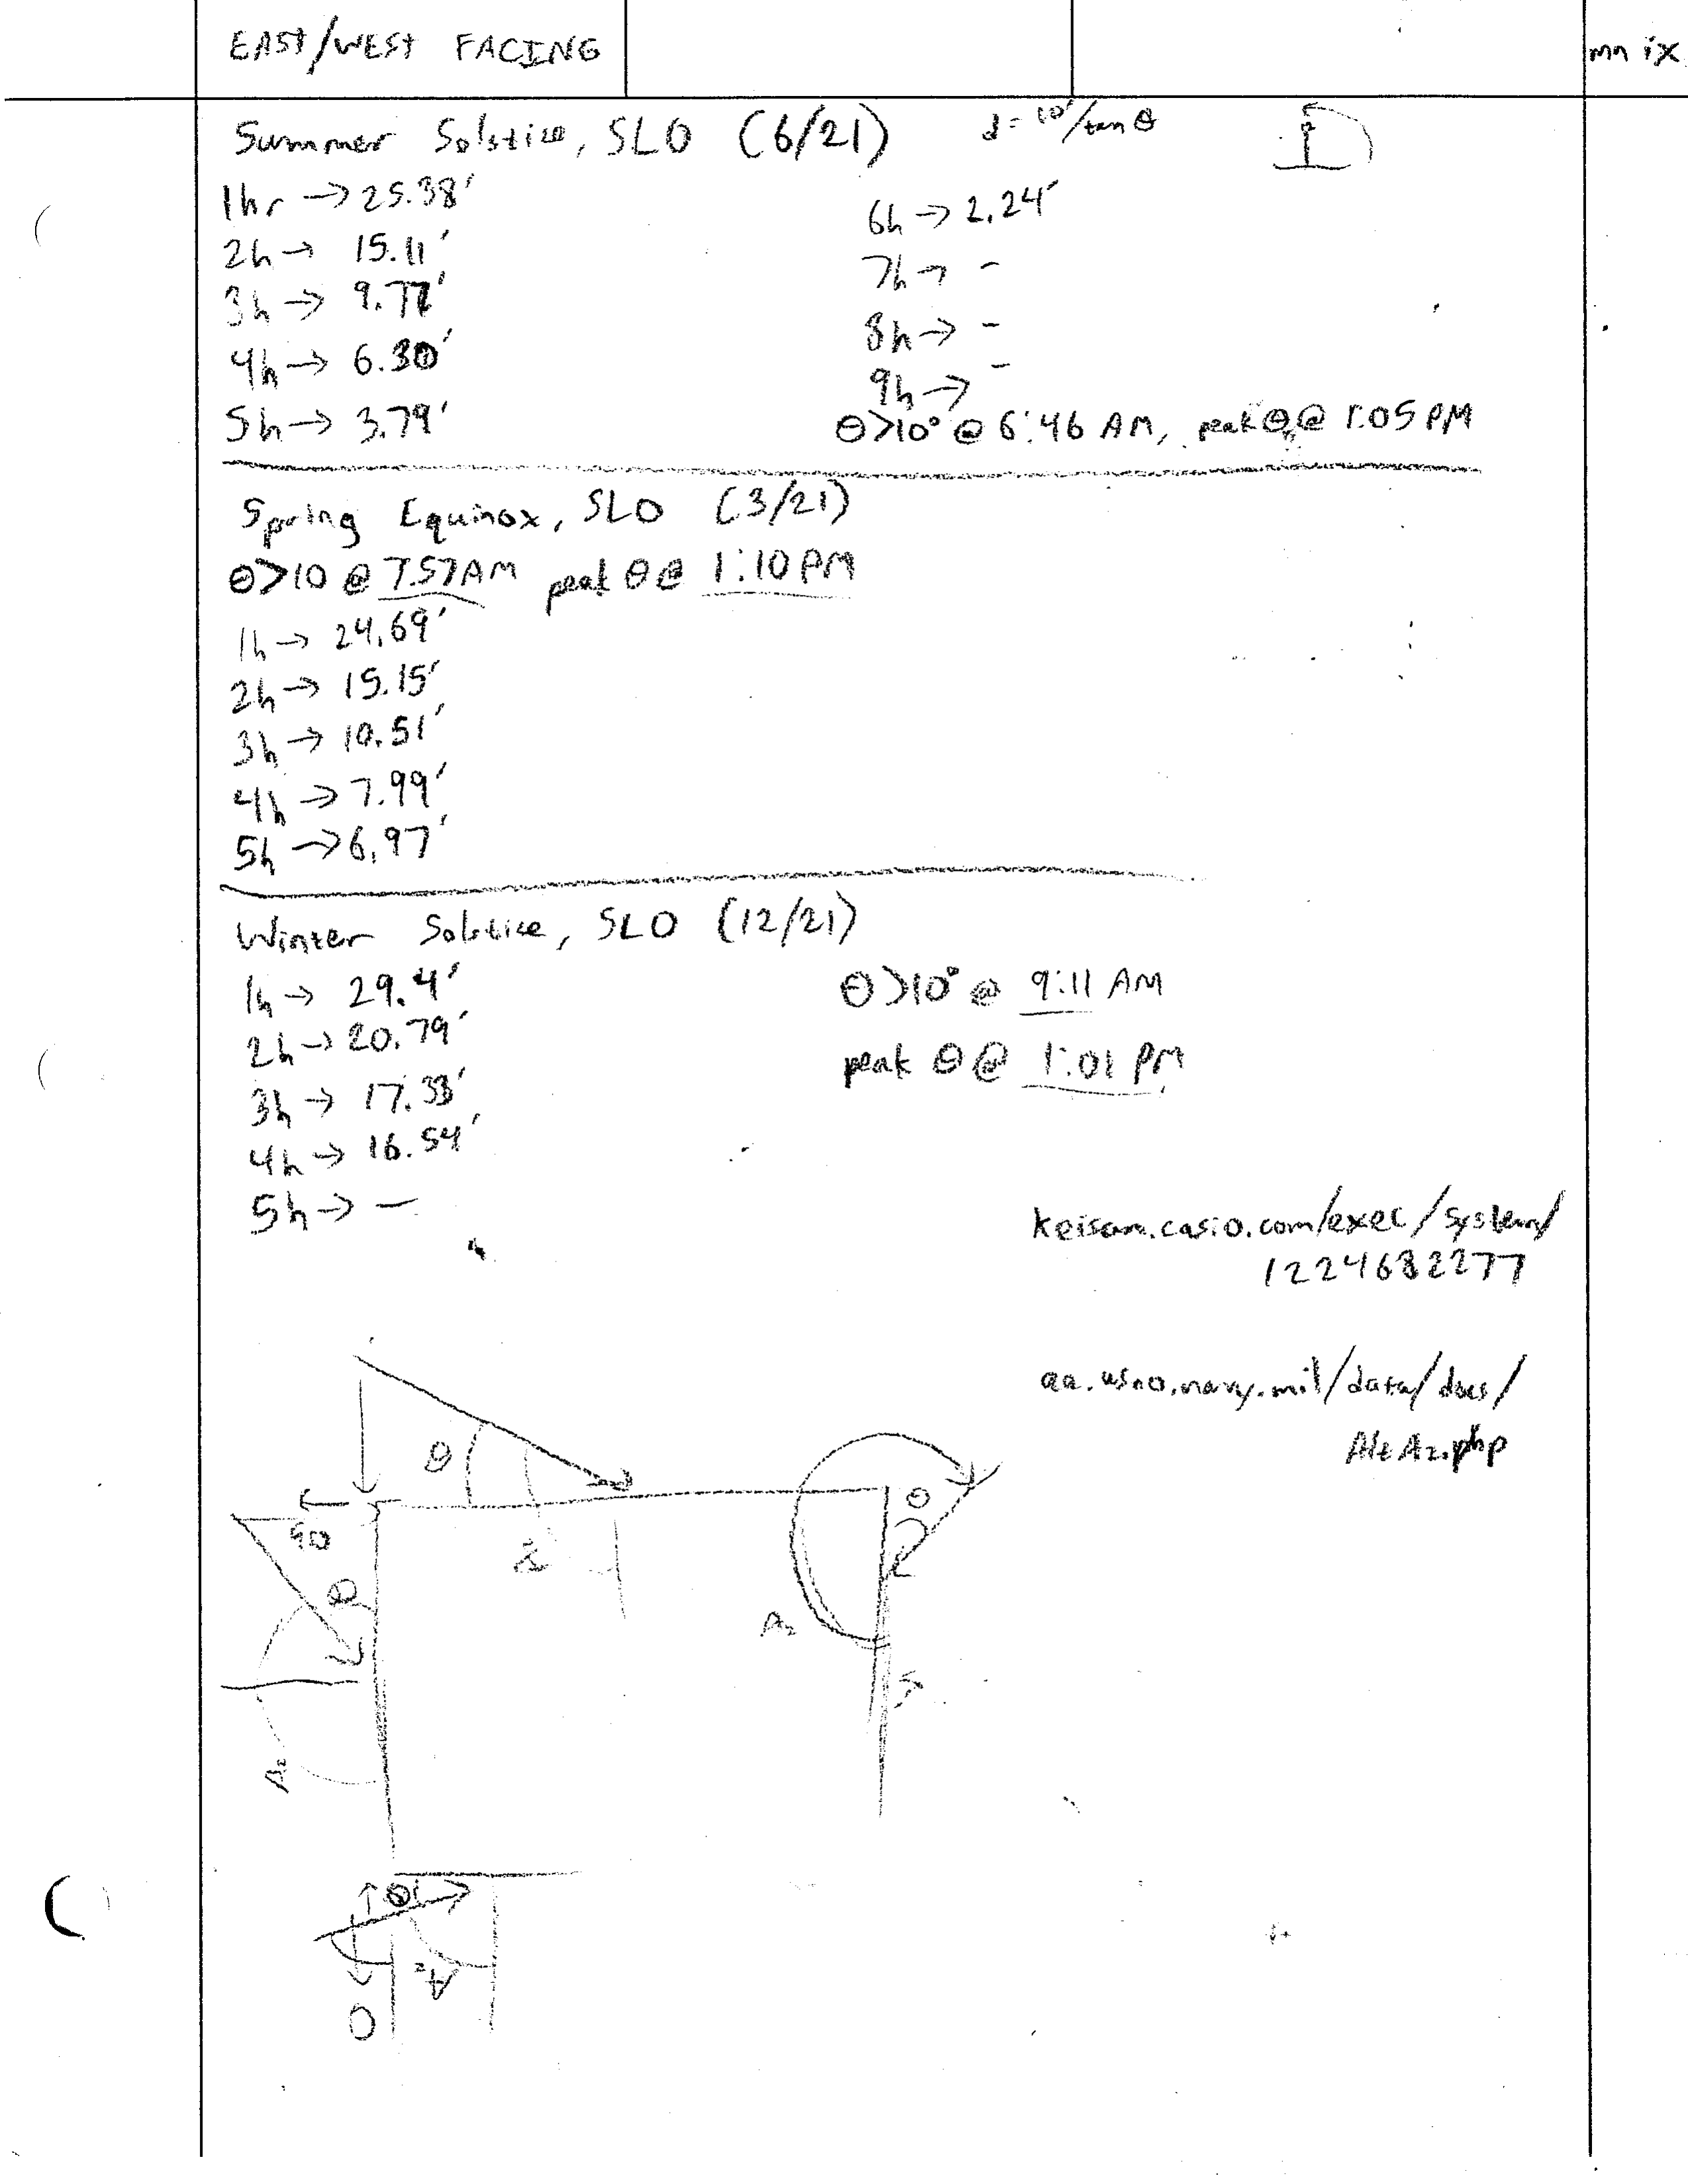 EAST/WEST FACING
mn ix
Summer Solstice, SLO (6/21)
d = 10'/tan θ
1hr → 25.38'
2h → 15.11'
3h → 9.77'
4h → 6.30'
5h → 3.79'
6h → 2.24'
7h → -
8h → -
9h → -
θ>10° @ 6:46 AM, peak θ @ 1:05 PM
Spring Equinox, SLO (3/21)
θ>10 @ 7:57AM peak θ @ 1:10 PM
1h → 24.69'
2h → 15.15'
3h → 10.51'
4h → 7.99'
5h → 6.97'
Winter Solstice, SLO (12/21)
1h → 29.4'
2h → 20.79'
3h → 17.33'
4h → 16.54'
5h → —
θ>10° @ 9:11 AM
peak θ @ 1:01 PM
keisan.casio.com/exec/system/
1224682277
aa.usno.navy.mil/data/docs/
AltAz.php
θ
θ
90
θ
Az
Az
θ
Az
0